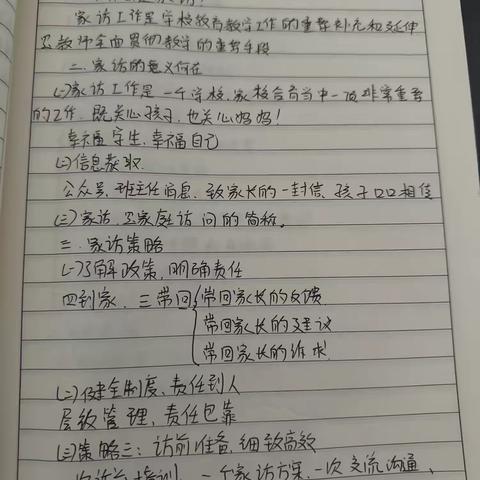 家访工作是学校教育教学工作的重要补充和延伸
是教师全面贯彻教学的重要手段
二、家访的意义何在
(一)家访工作是一个学校、家校合育当中一项非常重要
的工作,既关心孩子,也关心妈妈!
幸福学生,幸福自己
(二)信息获取.
公众号、班主任消息、致家长的一封信、孩子口口相传
(三)家访,是家庭访问的简称。
三、家访策略
(一)了解政策,明确责任
四到家、三带回 带回家长的反馈
带回家长的建议
带回家长的诉求.
(二)健全制度、责任到人
层级管理,责任包靠
(三)策略三:访前准备,细致高效
一次访前培训、一个家访方案、一次交流沟通、